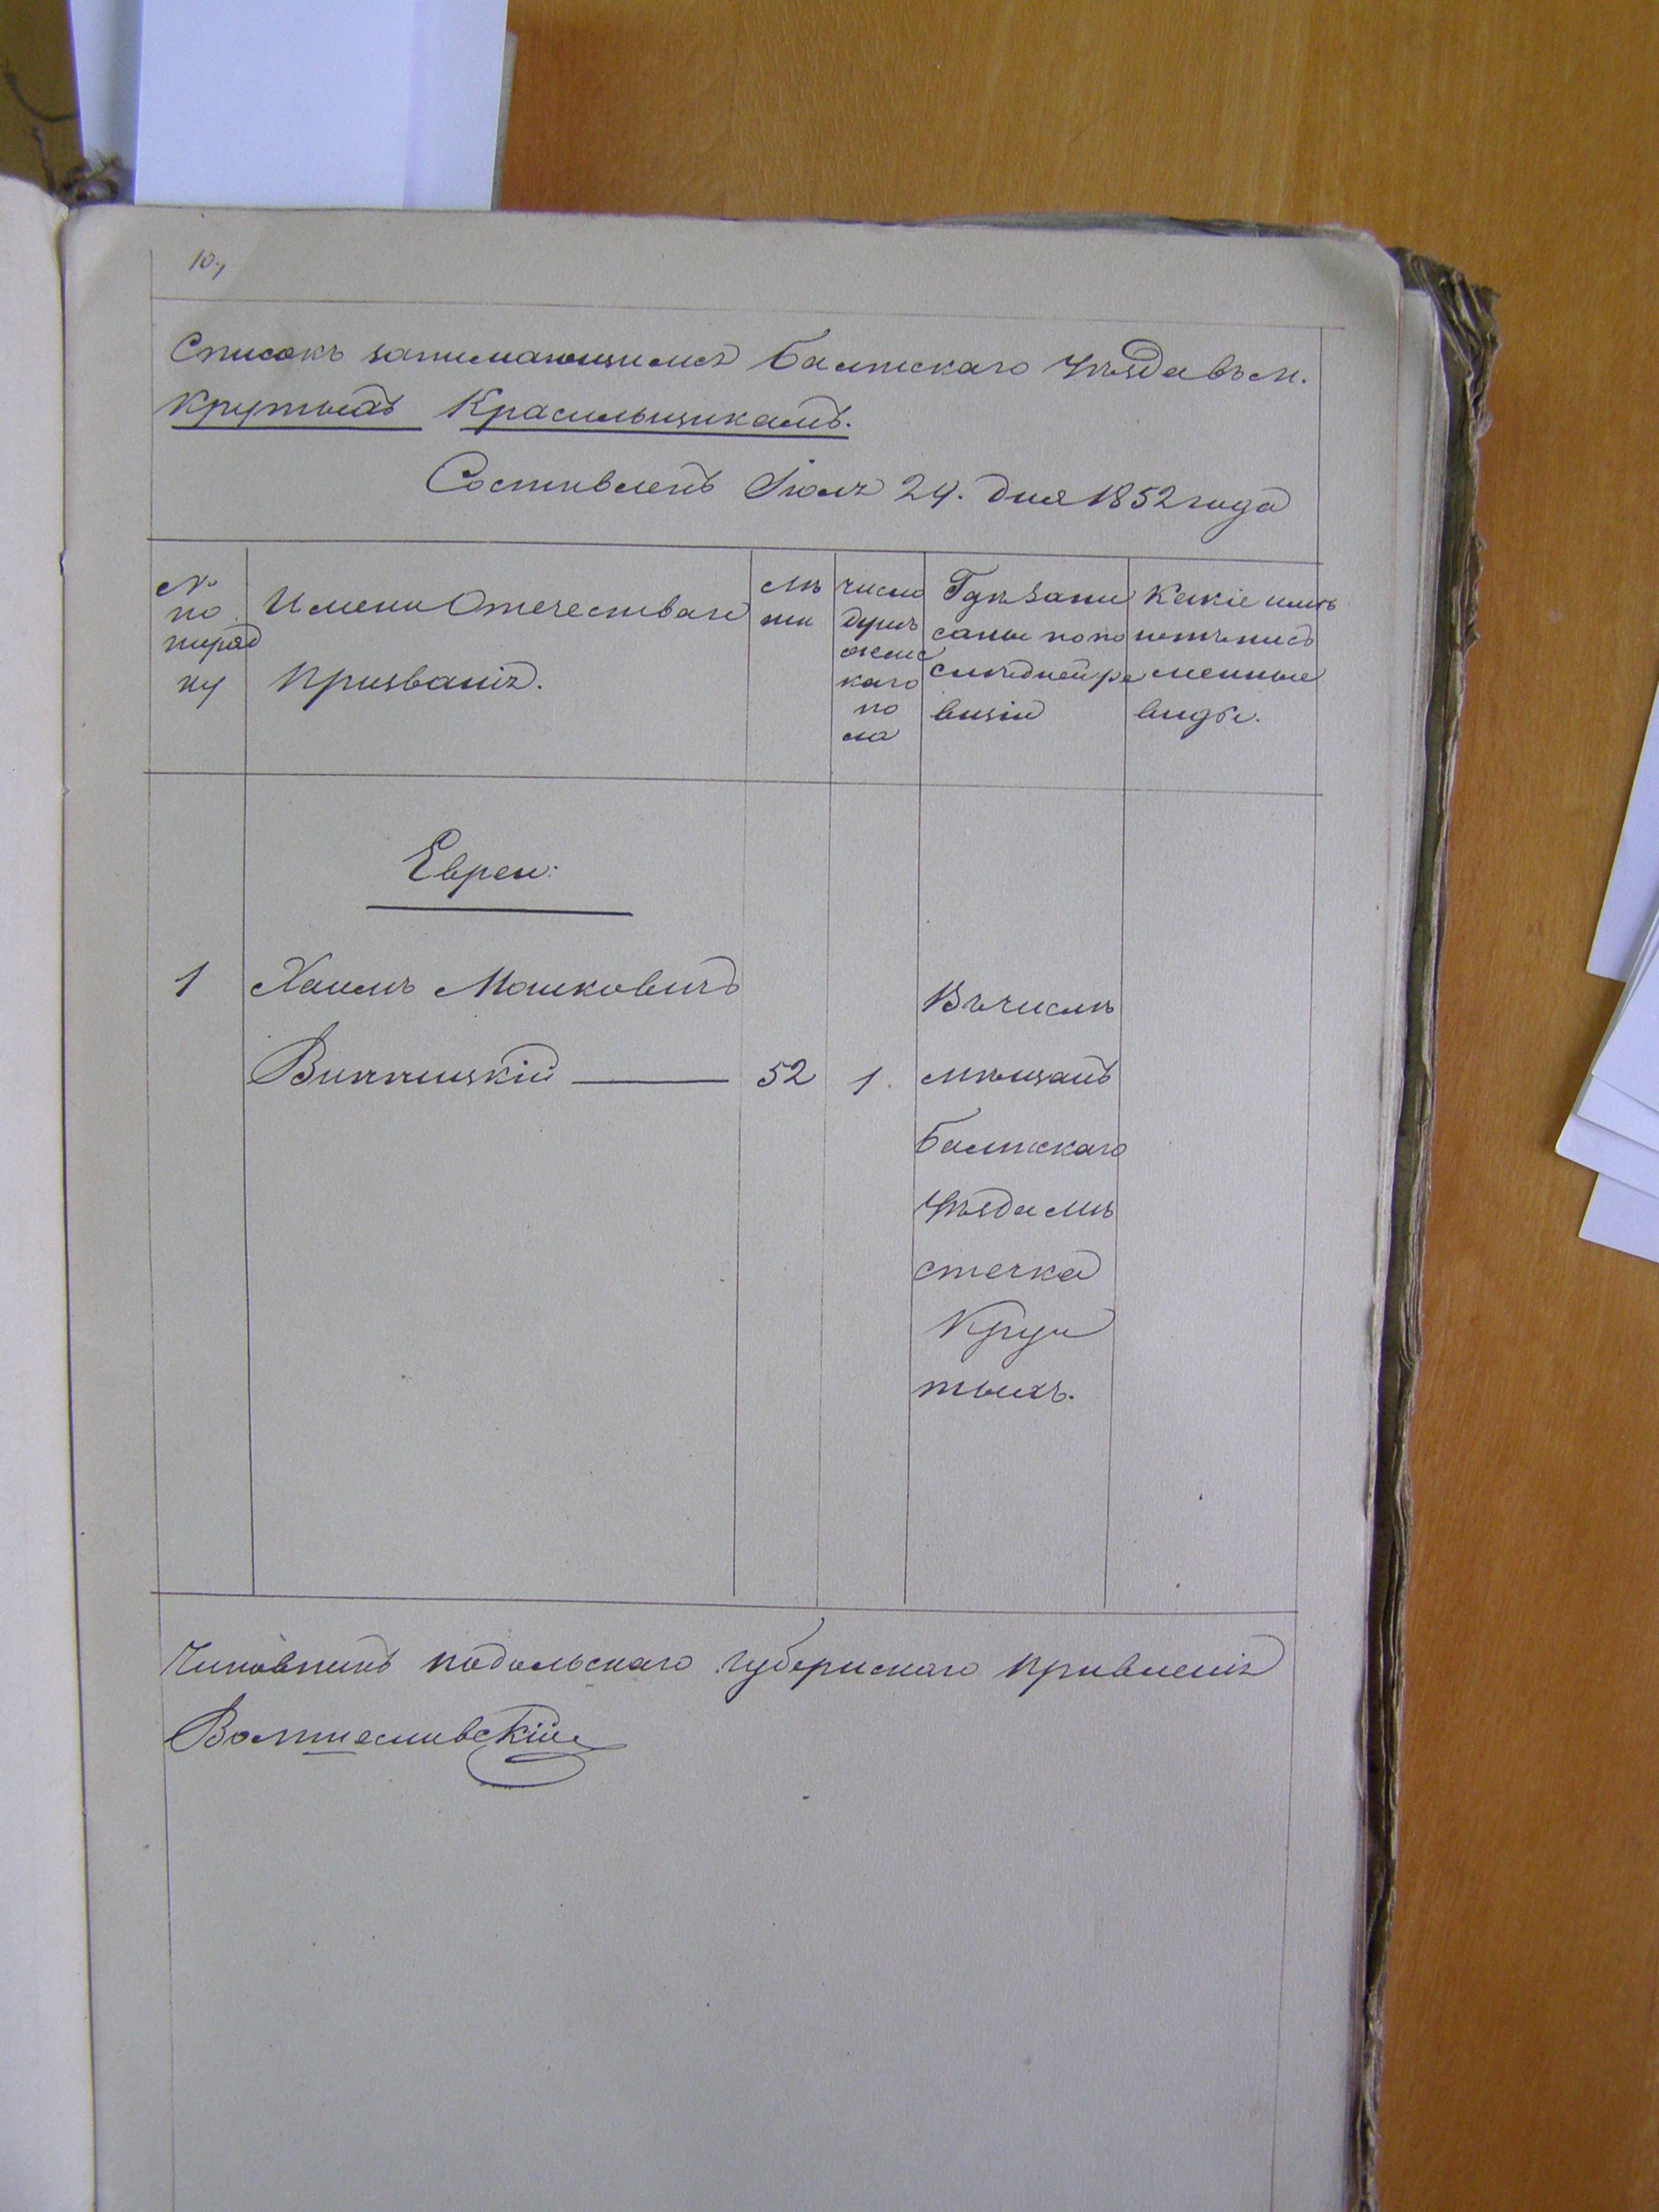 10.,
Списокъ занимающимся Балтскаго Уѣзда въ м.
Крутыхъ Красильщикамъ.
Составленъ Іюля 24. дня 1852 года
№ по порядку
Имена Отечества и
Призванія.
Лѣ
та
число
душъ
женс
каго
по
ла
Гдѣ запи
саны по по
слѣдней ре
визіи
Какіе имѣ
ютъ пись
менные
виды.
Евреи:
1 Хаимъ Мошковичъ
Винницкій — 52 1.
Въ числѣ
мѣщанъ
Балтскаго
Уѣзда мѣ
стечка
Кру
тыхъ.
Чиновникъ подольскаго губернскаго правленія